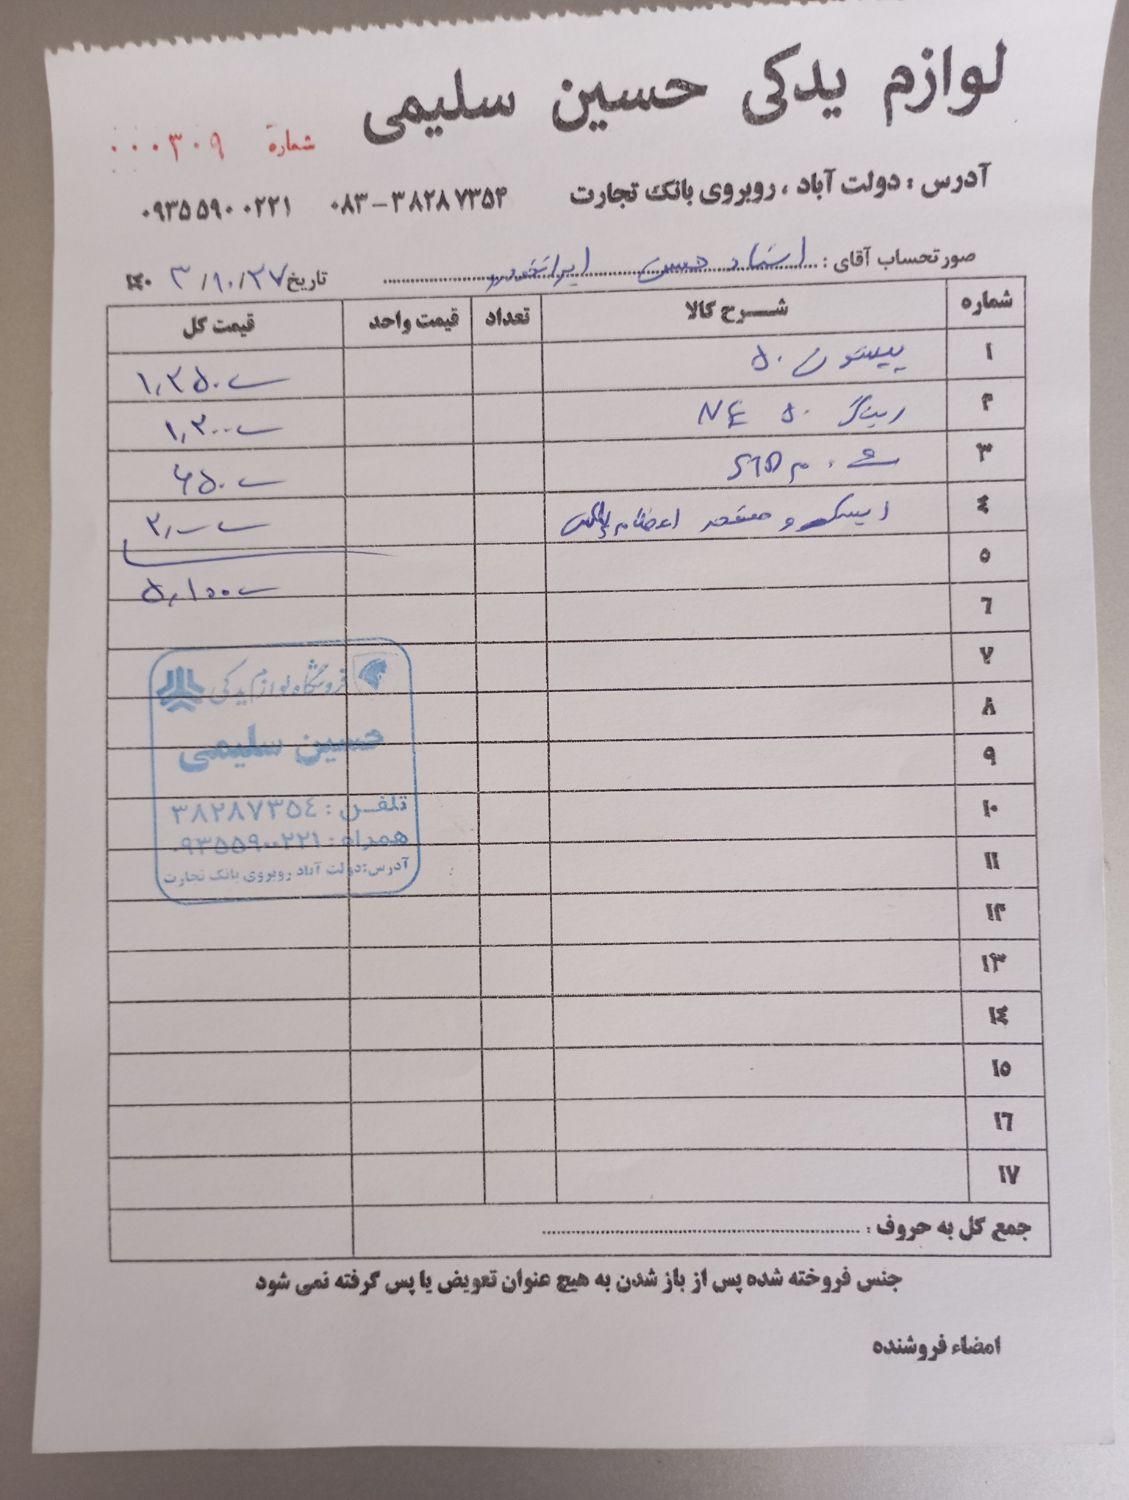 لوازم یدکی حسین سلیمی
شماره ۰۰۰۳۰۹
آدرس : دولت آباد ، روبروی بانک تجارت ۰۸۳-۳۸۲۸۷۳۵۴ ۰۹۳۵۵۹۰۰۲۲۱
صورتحساب آقای : استاد حسن تاریخ ۱۴۰۳/۱۰/۲۷
شماره شرح کالا تعداد قیمت واحد قیمت کل
۱ پیستون ۵۰ ۱,۲۵۰
۲ رینگ ۵۰ NE ۱,۲۰۰
۳ م STD ۶۵۰
۴ دیسک و صفحه ۲,۰۰۰
۵ ۵,۱۰۰
۶
۷
۸
۹
۱۰
۱۱
۱۲
۱۳
۱۴
۱۵
۱۶
۱۷
فروشگاه لوازم یدکی
حسین سلیمی
تلفن : ۳۸۲۸۷۳۵۴
همراه : ۰۹۳۵۵۹۰۰۲۲۱
آدرس: دولت آباد روبروی بانک تجارت
جمع کل به حروف :
جنس فروخته شده پس از باز شدن به هیچ عنوان تعویض یا پس گرفته نمی شود
امضاء فروشنده